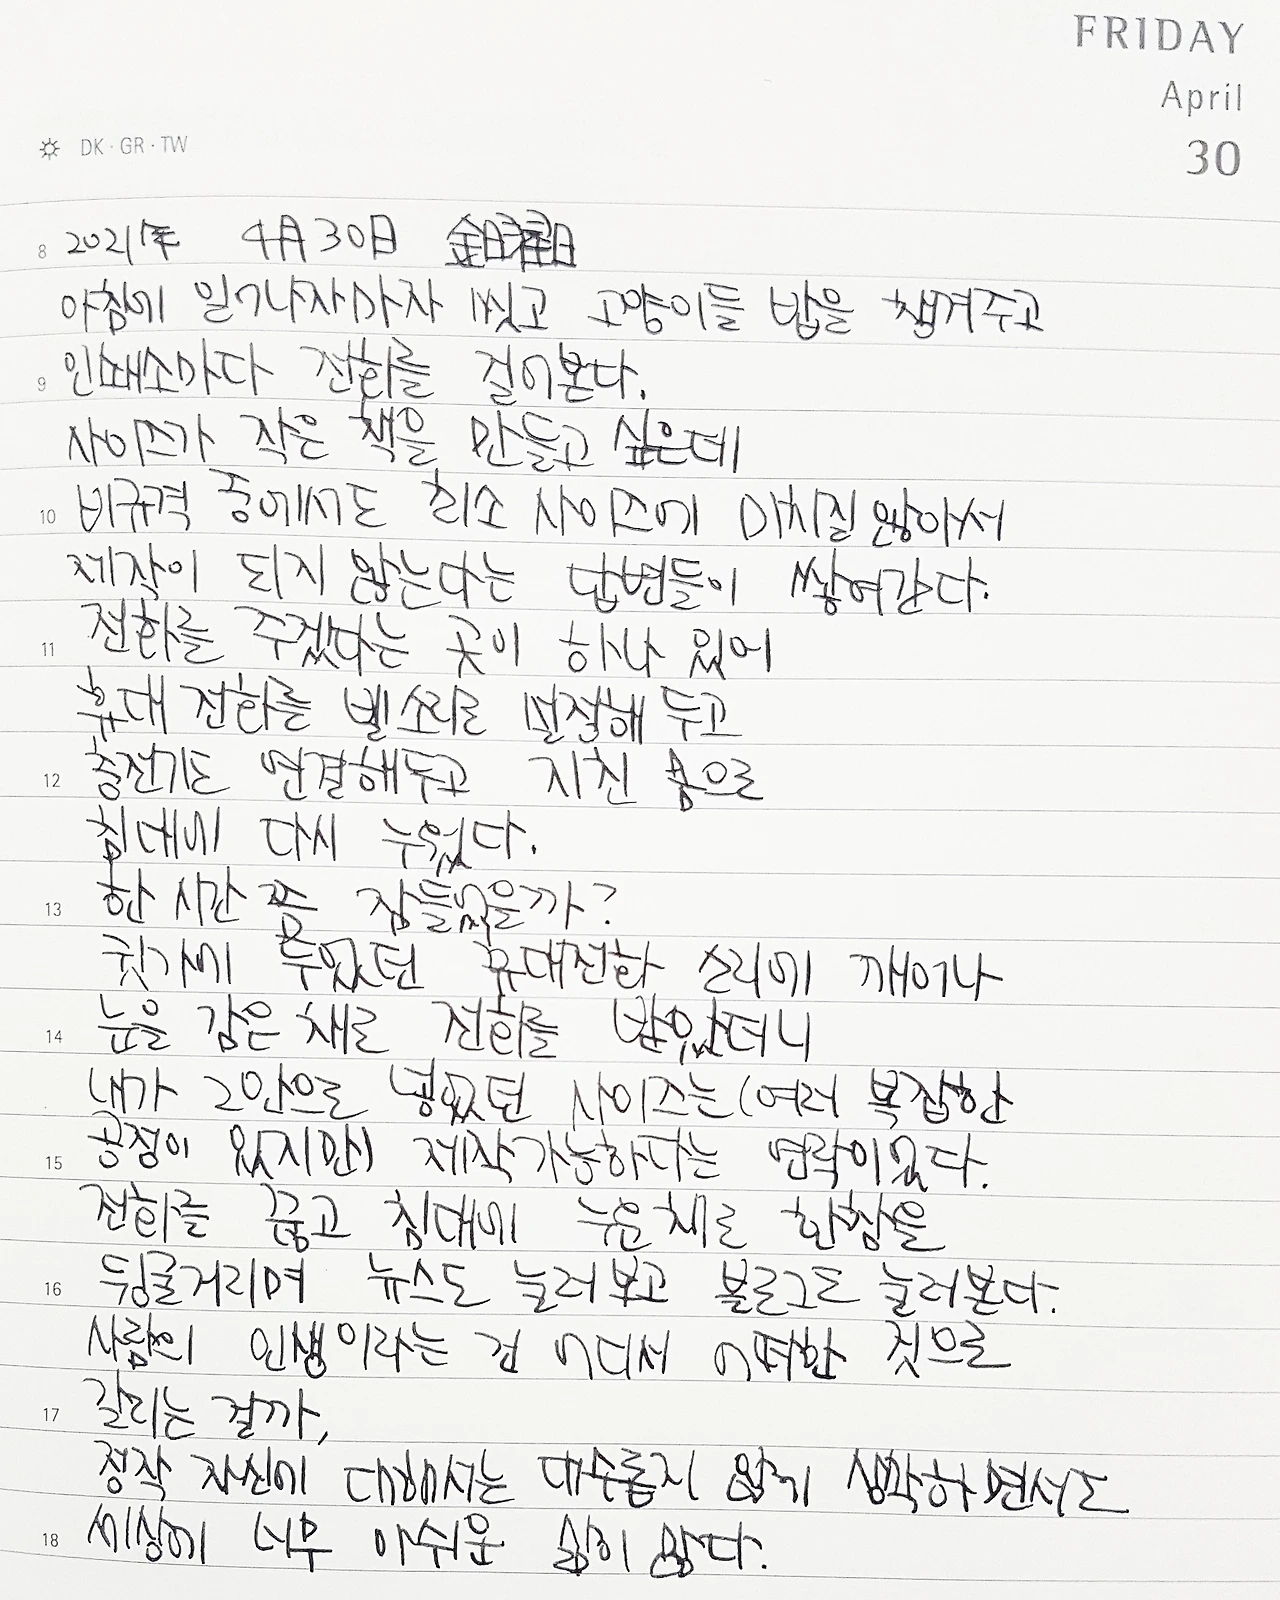 FRIDAY
April
30
DK · GR · TW
8 2021年 4月30日 金曜日
아침에 일어나자마자 씻고 고양이들 밥을 챙겨주고
9 인쇄소마다 전화를 걸어본다.
사이즈가 작은 책을 만들고 싶은데
10 비규격 중에서도 최소 사이즈에 미치질 않아서
제작이 되지 않는다는 답변들이 쌓여간다.
11 전화를 주겠다는 곳이 하나 있어
휴대 전화를 벨소리로 변경해 두고
12 충전기도 연결해두고 지친 몸으로
침대에 다시 누웠다.
13 한 시간 쯤 잠들었을까?
귓가에 두었던 휴대전화 소리에 깨어나
14 눈을 감은 채로 전화를 받았더니
내가 2안으로 넣었던 사이즈는 (여러 복잡한
15 공정이 있지만) 제작가능하다는 연락이었다.
전화를 끊고 침대에 누운채로 한참을
16 뒹굴거리며 뉴스도 눌러보고 블로그도 눌러본다.
사람의 인생이라는 건 어디서 어떠한 것으로
17 갈리는 걸까,
정작 자신에 대해서는 대수롭지 않게 생각하면서도
18 세상에 너무 아쉬운 삶이 많다.